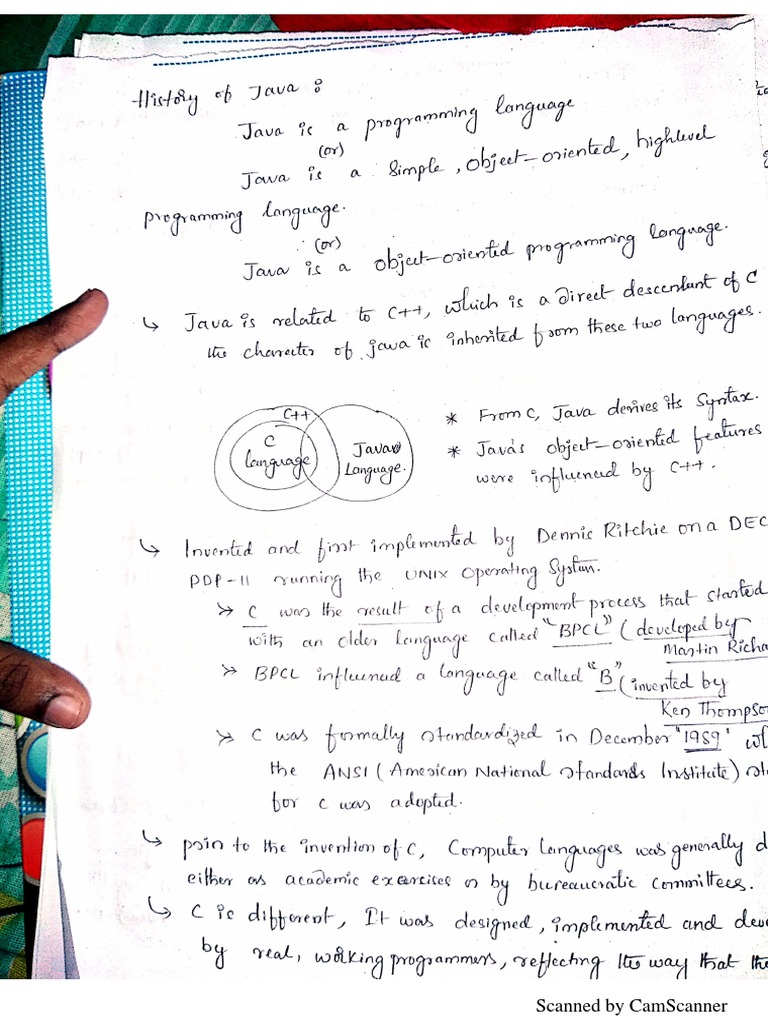 History of Java :
Java is a programming language
(or)
Java is a simple, object-oriented, highlevel
programming language.
(or)
Java is a object-oriented programming language.
↳ Java is related to C++, which is a direct descendant of C
the character of java is inherited from these two languages.
C++
C
language
Java
Language.
* From C, Java derives its Syntax.
* Java's object-oriented features
were influenced by C++.
↳ Invented and first implemented by Dennis Ritchie on a DEC
PDP-11 running the UNIX Operating System.
➢ C was the result of a development process that started
with an older language called "BPCL" (developed by
Martin Richa
➢ BPCL influenced a language called "B" (invented by
Ken Thompson
➢ C was formally standardized in December "1989" w
the ANSI (American National Standards Institute) st
for C was adopted.
↳ prior to the invention of C, Computer Languages was generally d
either as academic exercises or by bureaucratic committees.
↳ C is different, It was designed, implemented and deve
by real, working programmers, reflecting the way that the
Scanned by CamScanner